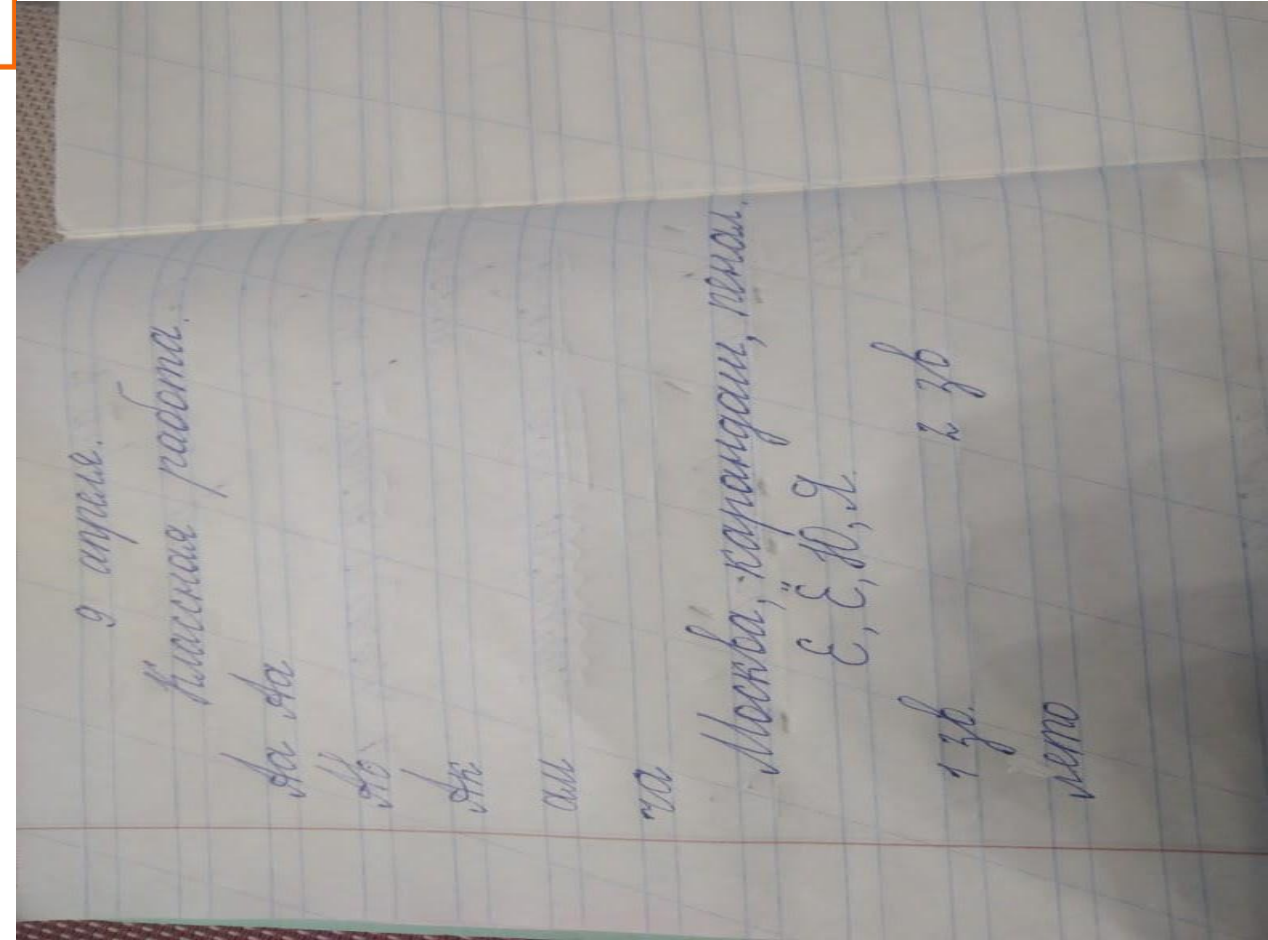 9 апреля.
Классная работа.
Аа Аа
Ав
Ак
ам
ча
Москва, карандаш, пенал.
Е, Ё, Ю, Я.
1 зв. 2 зв
лето